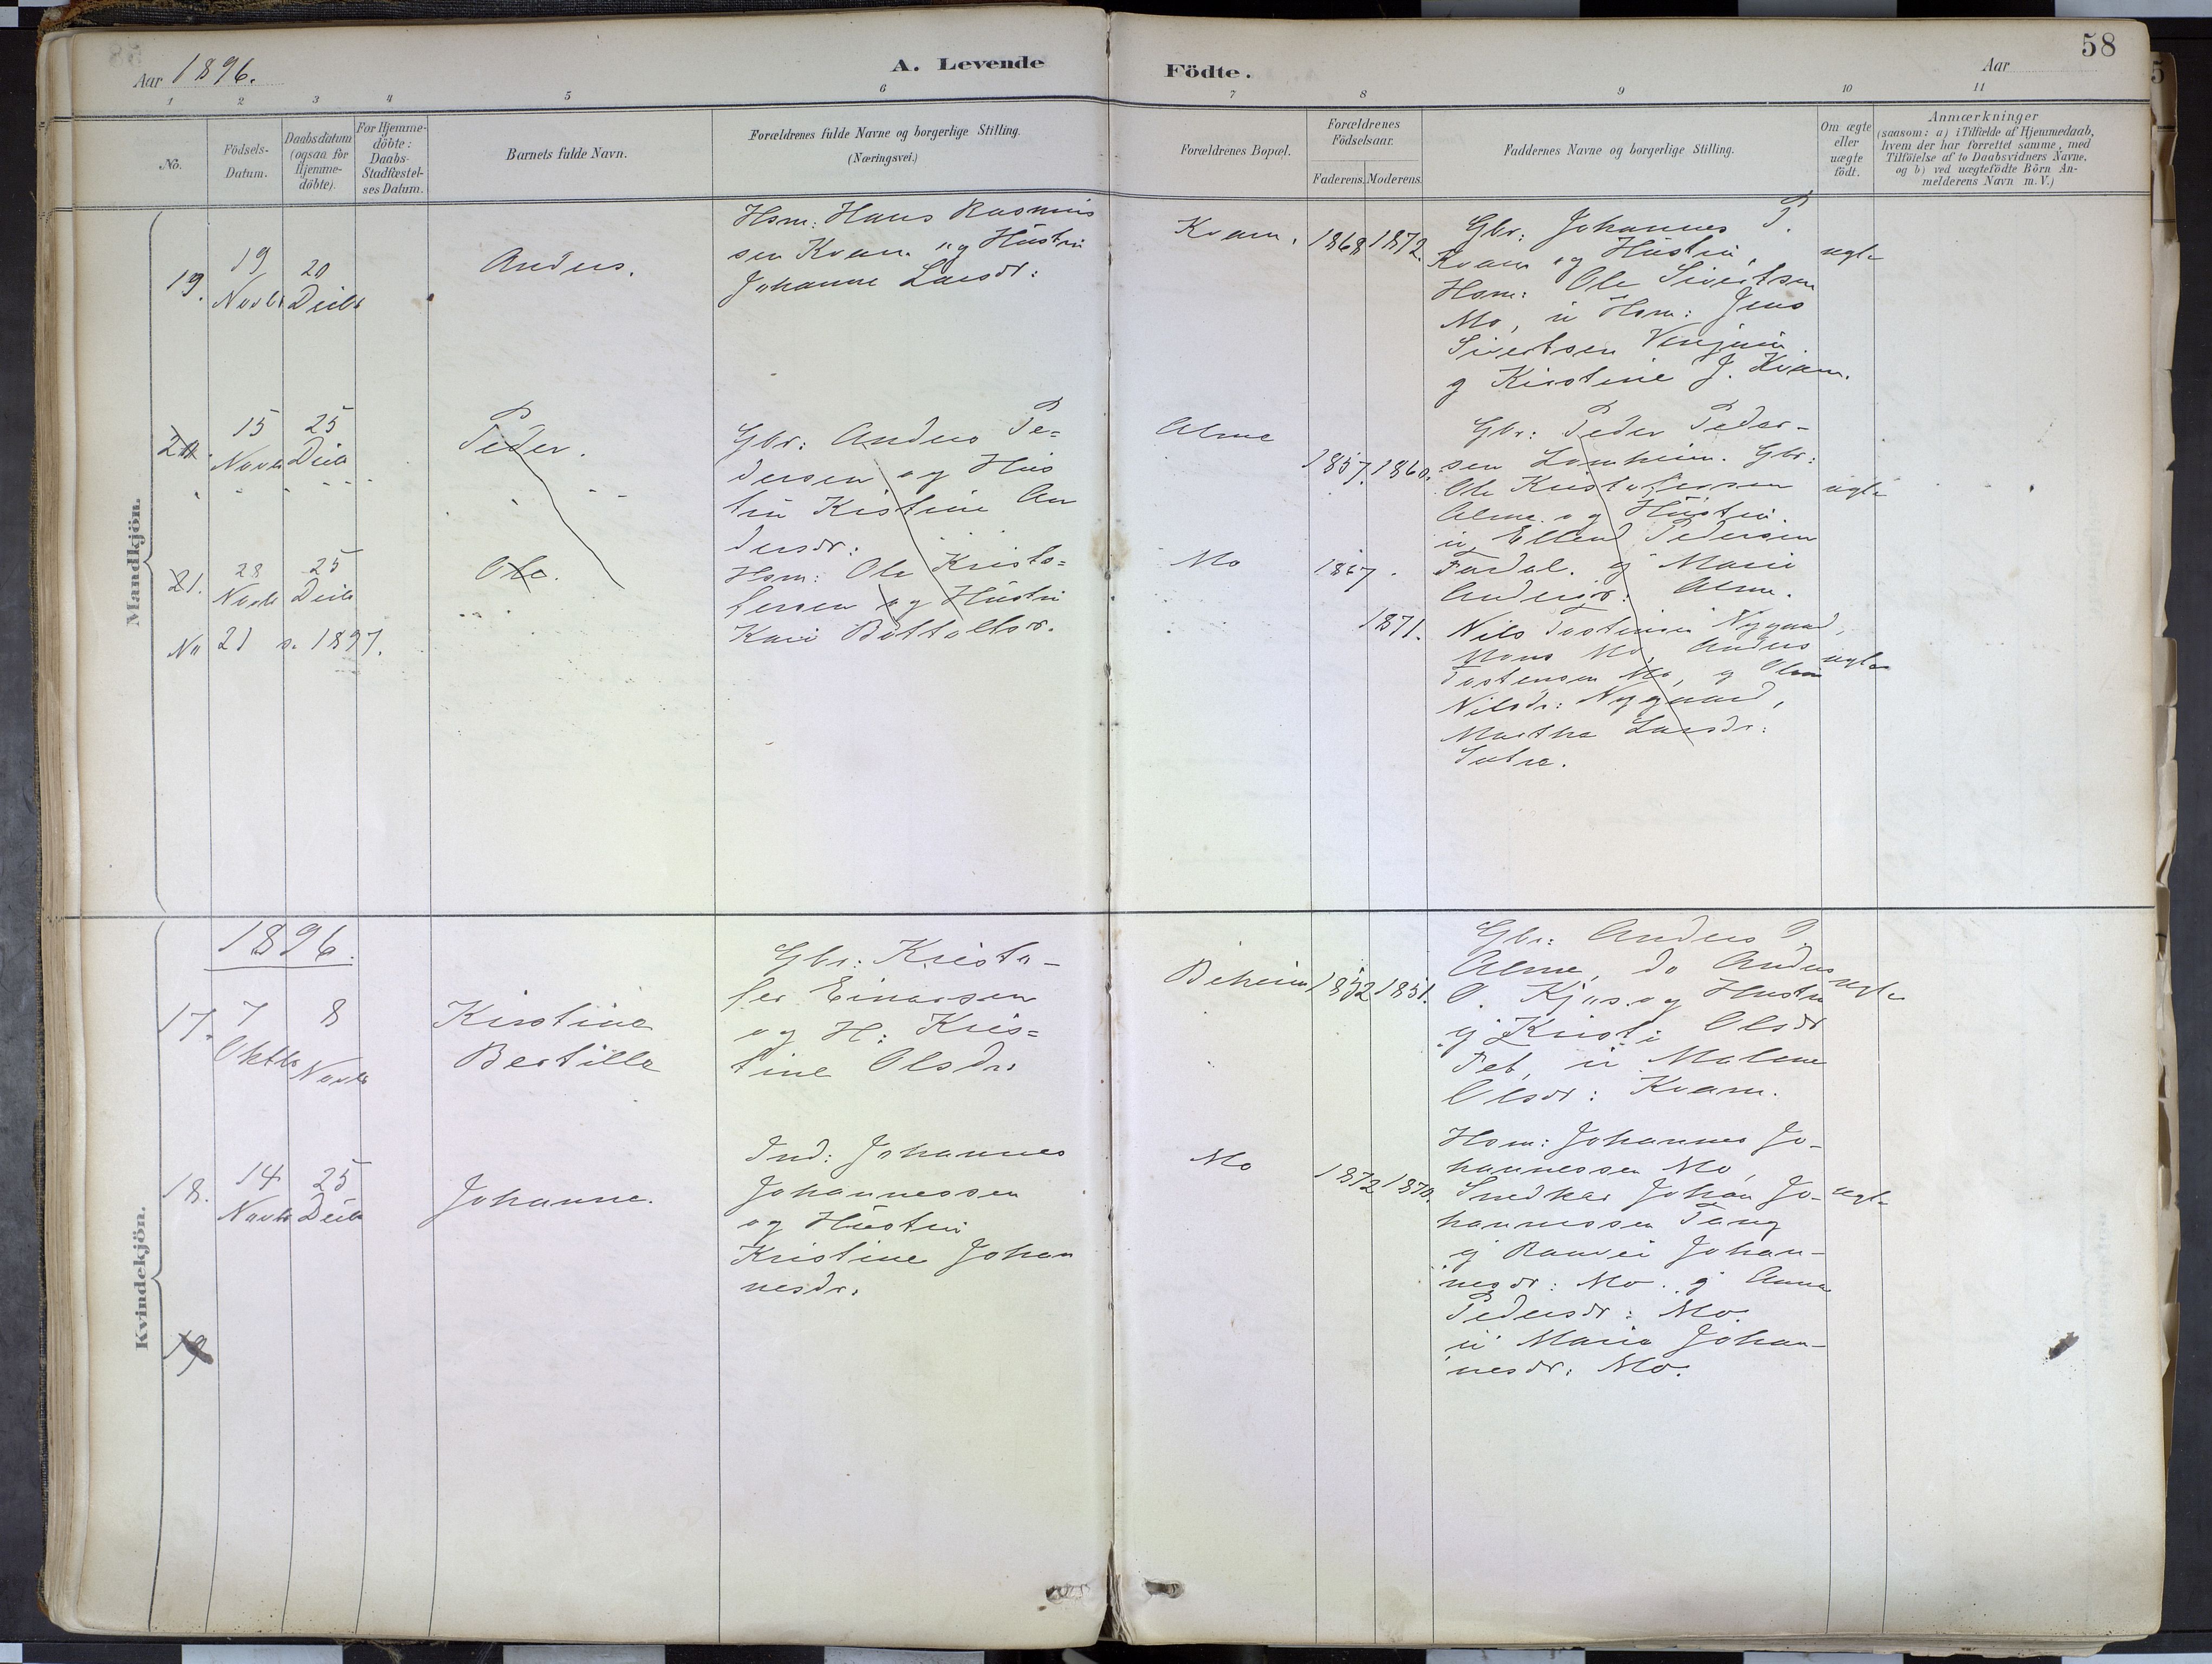 58
Aar 1896.
A. Levende
Födte.
Aar
1 2 3 4 5 6 7 8 9 10 11
No.
Födsels-
Datum.
Daabsdatum
(ogsaa for
Hjemme-
döbte).
For Hjemme-
döbte:
Daabs-
Stadfæstel-
ses Datum.
Barnets fulde Navn.
Forældrenes fulde Navne og borgerlige Stilling.
(Næringsvei.)
Forældrenes Bopæl.
Forældrenes
Födselsaar.
Faderens. Moderens.
Faddernes Navne og borgerlige Stilling.
Om ægte
eller
uægte
födt.
Anmærkninger
(saasom: a) i Tilfælde af Hjemmedaab,
hvem der har forrettet samme, med
Tilföielse af to Daabsvidners Navne.
og b) ved uægtefödte Börn An-
melderens Navn m. V.)
Mandkjön.
19.
19 Novbr
20 Decbr
Anders.
Hsm: Hans Rasmus
sen Kvam og Hustru
Johanne Larsdr:
Kvam.
1868 1872.
Gbr: Johannes P.
Kvam og Hustru,
Hsm: Ole Sivertsen
Mo, u Hsm: Jens
Sivertsen
g Kirstine J. Kvam.
ægte
20.
15 Novbr
25 Decbr
Peder.
Gbr: Anders Pe=
dersen og Hus
tru Kistine An
dersdr:
Alme
1857. 1860.
Gbr: Peder Peder-
sen Lomheim. Gbr:
Ole Kristofersen
Alme og Hustru.
u Ellend Pedersen
g Marie
Andersdr: Alme.
ægte
21.
28 Novbr
25 Decbr
Ole.
Hsm: Ole Kristo=
fersen og Hustru
Kari Bottolfsdr.
Mo
1867.
1871.
Nils Tostensen Nygaard,
Mons Mo, Anders
Tostensen Mo, g
Nilsdr: Nygaard,
Martha Larsdr:
ægte
No 21 s. 1897.
Kvindekjön.
1896.
17.
7 Oktbr
8 Novbr
Kirstine
Bertille
Gbr: Kristo-
fer Einarsen
og H: Kris=
tine Olsdr:
Beheim
1852 1851.
Gbr: Anders P.
Alme, do Anders
O. Kjøs og Hustru
g Kristi Olsdr
Feb, u Malene
Olsdr: Kvam.
ægte
18.
14 Novbr
25 Decbr
Johanne.
Ind: Johannes
Johannessen
og Hustru
Kristine Johan
nesdr.
Mo
1872 1870.
Hsm: Johannes Jo-
hannessen Mo,
Snedker Johan Jo-
hannessen Tang
g Ranvei Johan-
nesdr: Mo. g Anna
Pedersdr: Mo.
u Maria Johan-
nesdr: Mo.
ægte
19